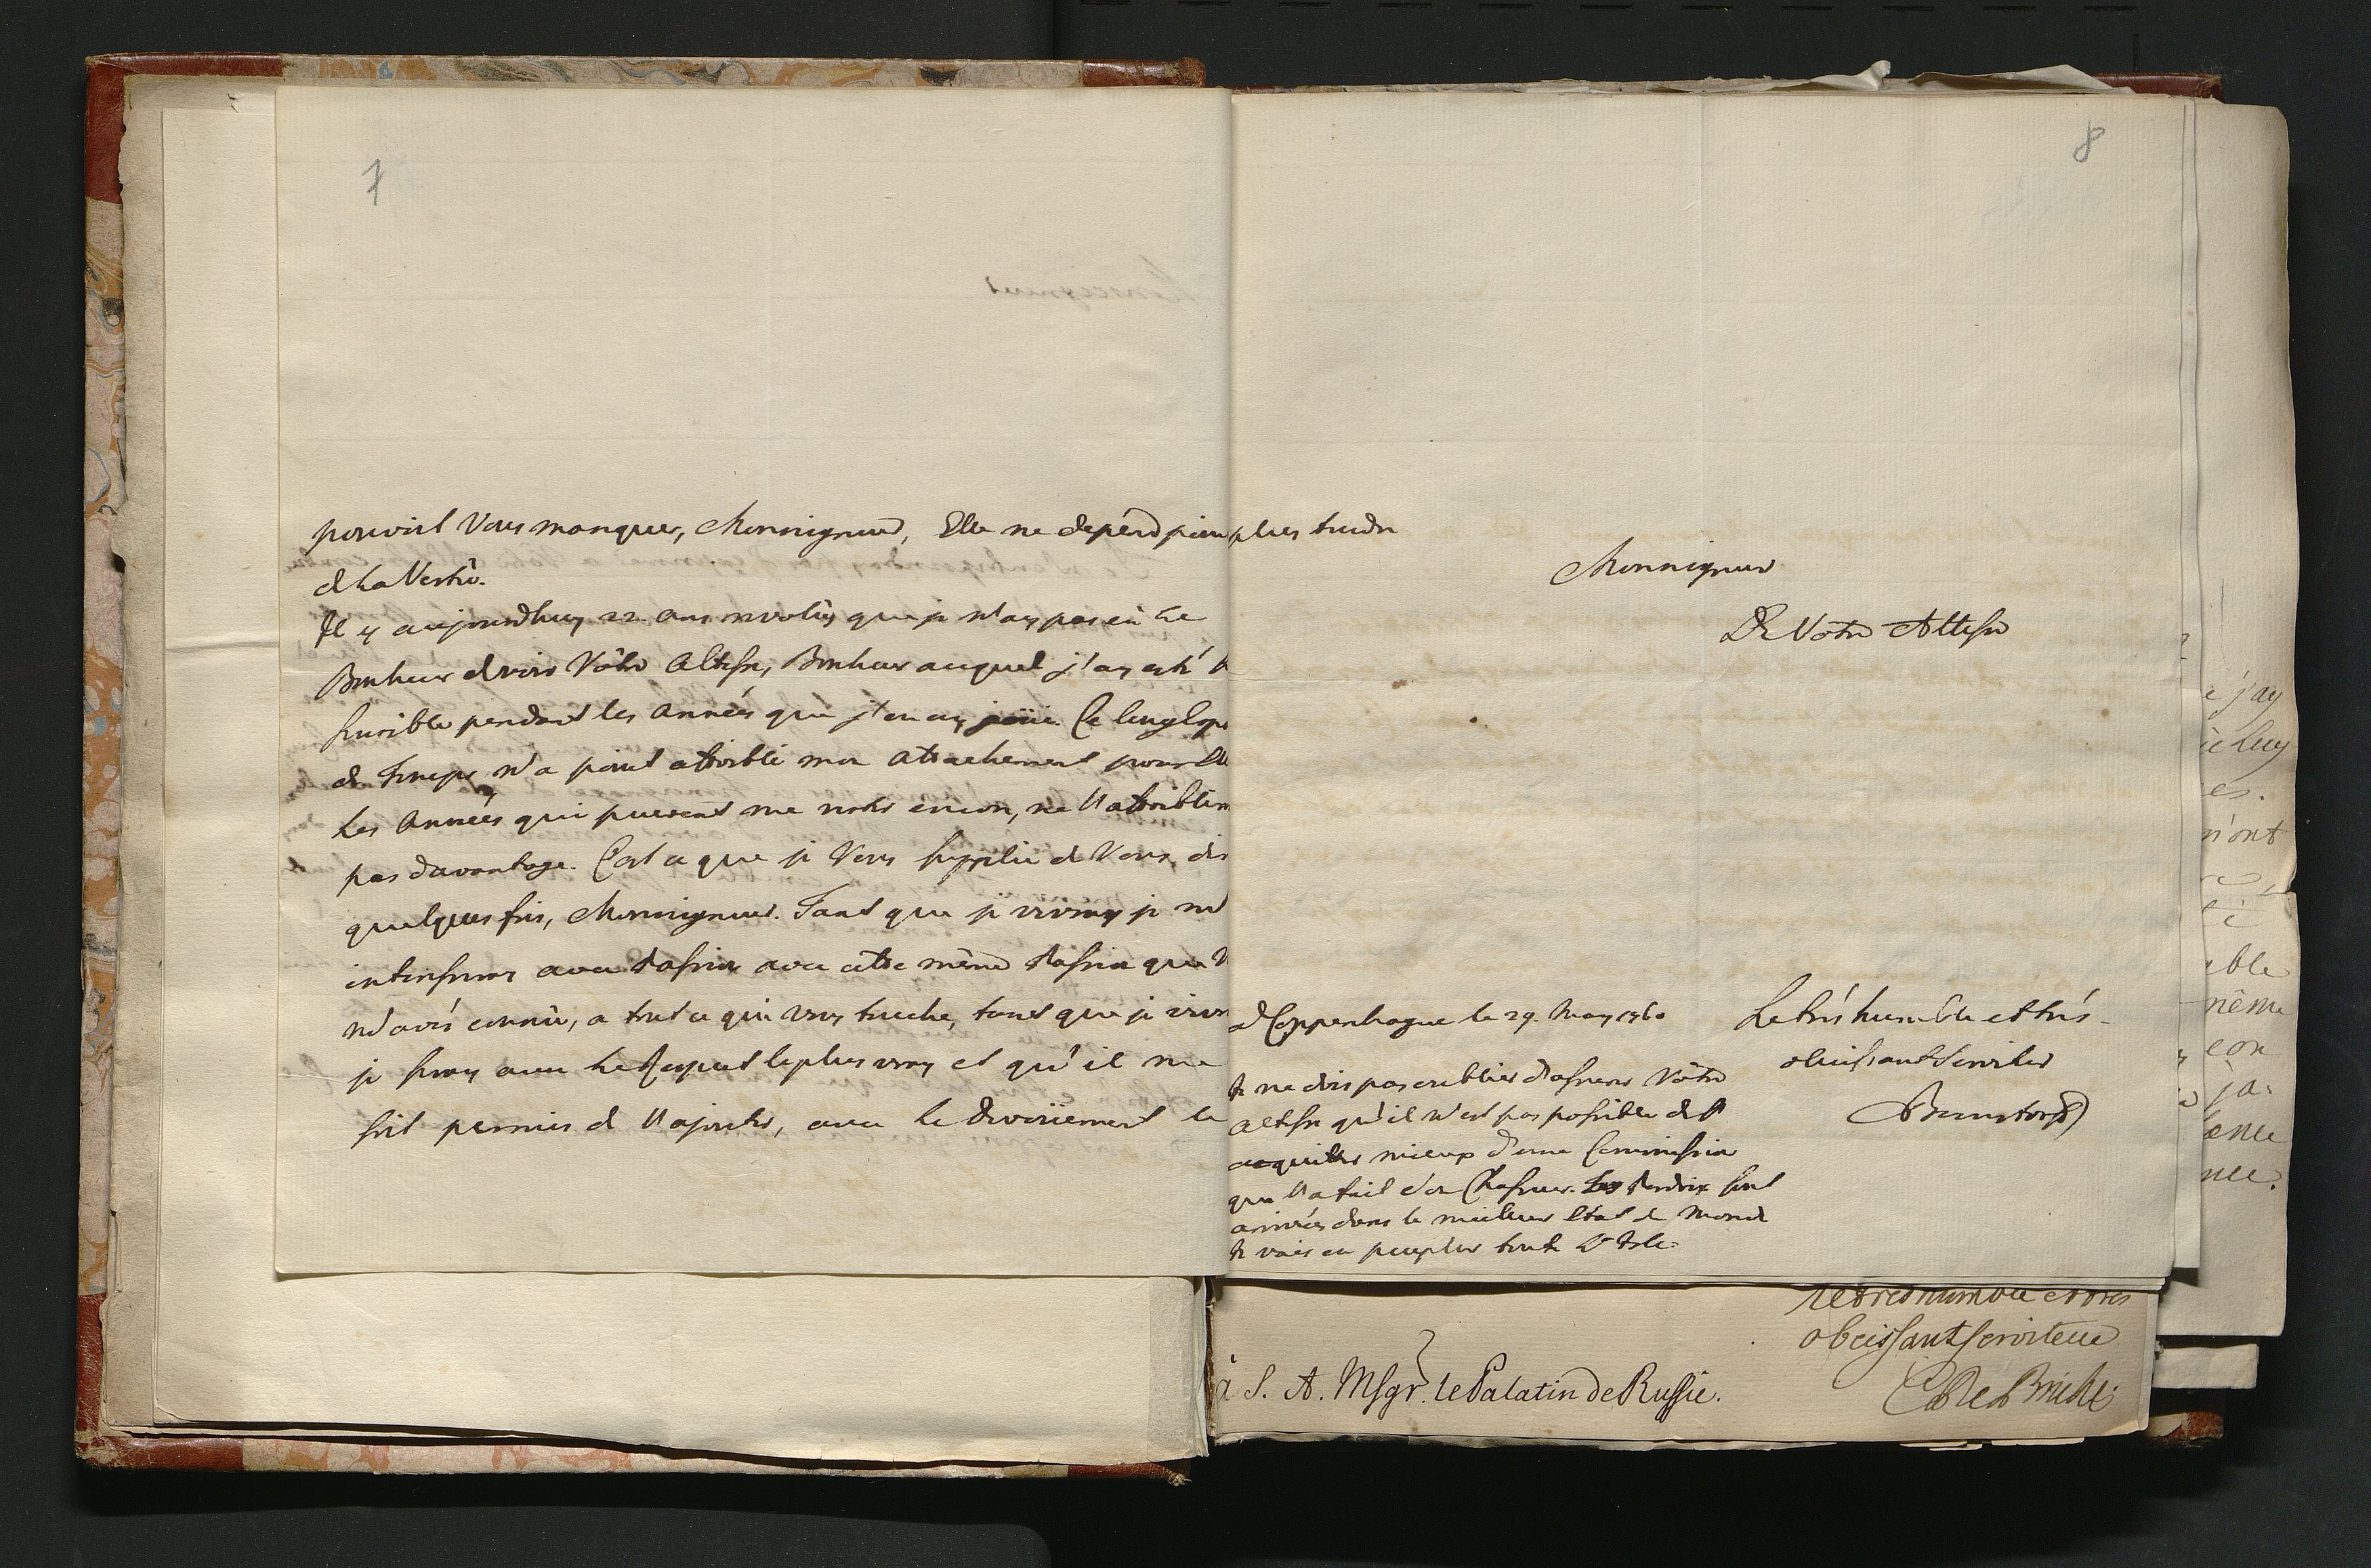 7
pouvoit Vous manquer, Monseigneur, Elle ne depend
de la Vertû.
Il y aujourdhuy 22 ans revolûs que je n'ay pas eû Le
Bonheur de voir Vôtre Altesse, Bonheur auquel j'ay esté
sensible pendant les Années que j'en ay joüi. Ce long
de Temps n'a point affoibli mon Attachement pour
Les Années qui peuvent me rester encore, ne l'affoibliron
pas davantage. C'est ce que je Vous supplie de Vous dir
quelques fois, Monseigneur. Tant que je vivray je m'
interesseray avec Passion avec cette même Passion que V
m'avés connüe, a tout ce qui vous touche, tant que je
je seray avec Le Respect le plus vray et qu'il me
soit permis de l'ajouter, avec le Devoüement le
plus tendre
8
Monseigneur
De Vôtre Altesse
à Coppenhague le 29. May 1760
Le trés humble et trés
obeissant Serviteur
Bernstorff
Je ne dois pas oublier d'assurer Vôtre
Altesse qu'il n'est pas possible de s'
acquitter mieux d'une Commission
que l'a fait son Chasseur. Les Perdrix sont
arrivées dans le meilleur Etat du Monde
Je vais en peupler toute L'Isle.
le tres humble et tres
obeissant serviteur
à S. A. Msgr. le Palatin de Russie.
C de Brühl
j'ay
luy
és.
n'ont
ble
même
con
ja-
nce.